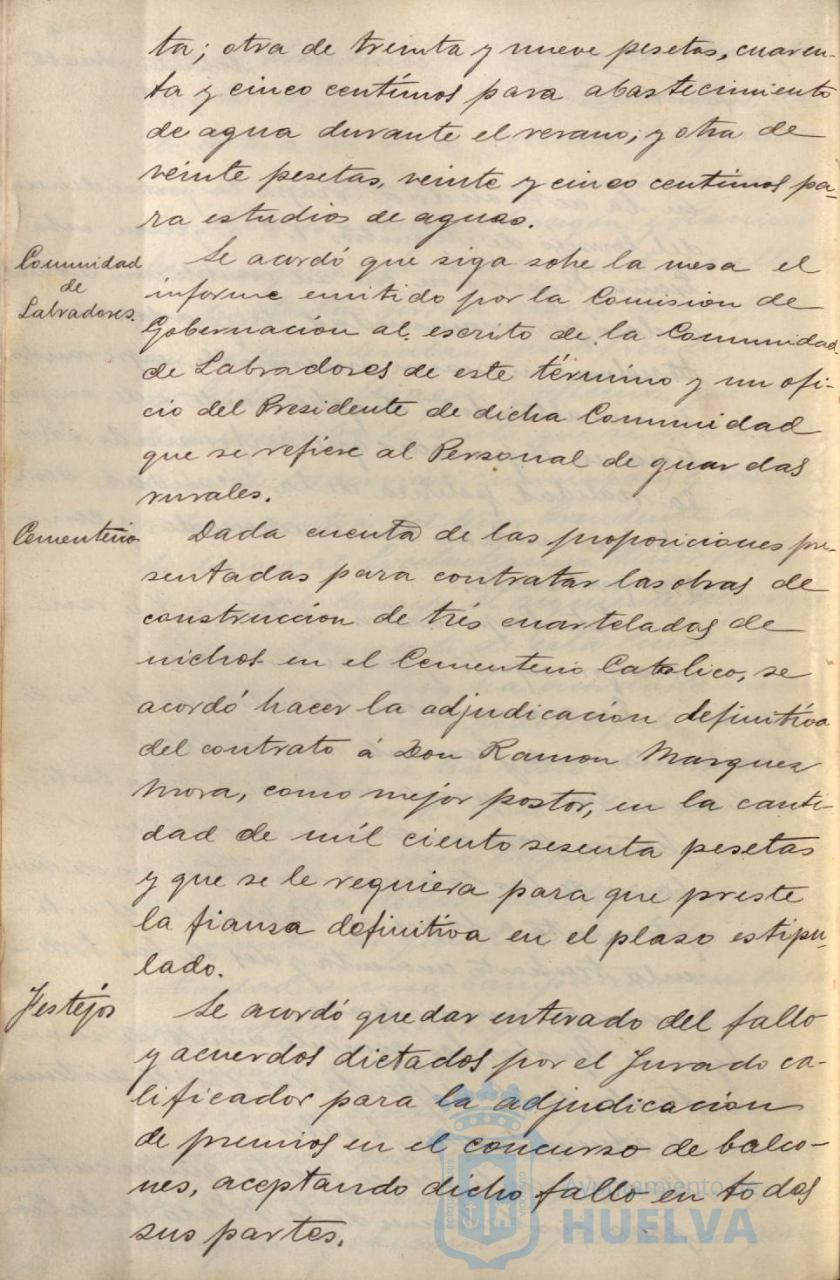 ta; otra de treinta y nueve pesetas, cuaren-
ta y cinco centímos para abastecimiento
de agua durante el verano; y otra de
veinte pesetas, veinte y cinco centímos pa-
ra estudios de aguas.
Comunidad
de
Labradores.
Se acordó que siga sobre la mesa el
informe emitido por la Comisión de
Gobernación al escrito de la Comunidad
de Labradores de este término y un ofi-
cio del Presidente de dicha Comunidad
que se refiere al Personal de guardas
rurales.
Cementerio
Dada cuenta de las proposiciones pre-
sentadas para contratar las obras de
construcción de trés cuarteladas de
nichos en el Cementerio Catolico, se
acordó hacer la adjudicación definitiva
del contrato á Don Ramon Marquez
Mora, como mejor postor, en la canti-
dad de mil ciento sesenta pesetas
y que se le requiera para que preste
la fianza definitiva en el plazo estipu-
lado.
Festéjos
Se acordó quedar enterado del fallo
y acuerdos dictados por el Jurado ca-
lificador para la adjudicación
de premios en el concurso de balco-
nes, aceptando dicho fallo en todas
sus partes.
Ayuntamiento de
HUELVA